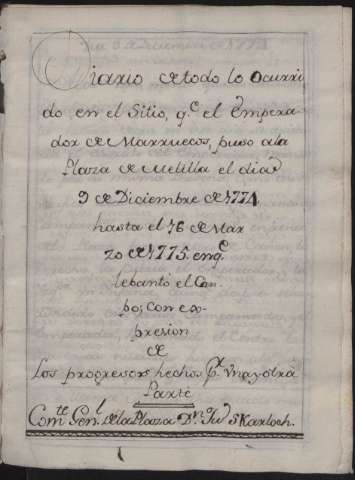 Diario de todo lo Ocurri
do en el Sitio, q.e el Empera
dor de Marruecos, puso a la
Plaza de Melilla el dia
9 de Diciembre de 1774
hasta el 16 de Mar
zo de 1775. en q.e
lebantó el Cam
po; con ex-
presion
de
Los progresos hechos p.r Una y otra
Parte
Com.te Gen.l de la Plaza D.n Ju Skarloch.